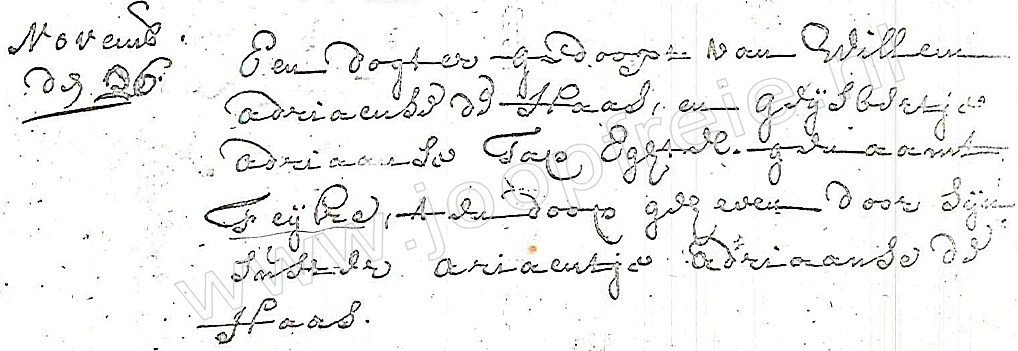 Novemb.
de 26.
Een dogter gedoopt van Willem
adriaense de Haas, en Geijsbertje
adriaanse Tap Eghtel. genaamt
Feijke, ten doop gegeven door sijn
suster ariaentje adriaanse de
Haas.
www.joopfreie.nl